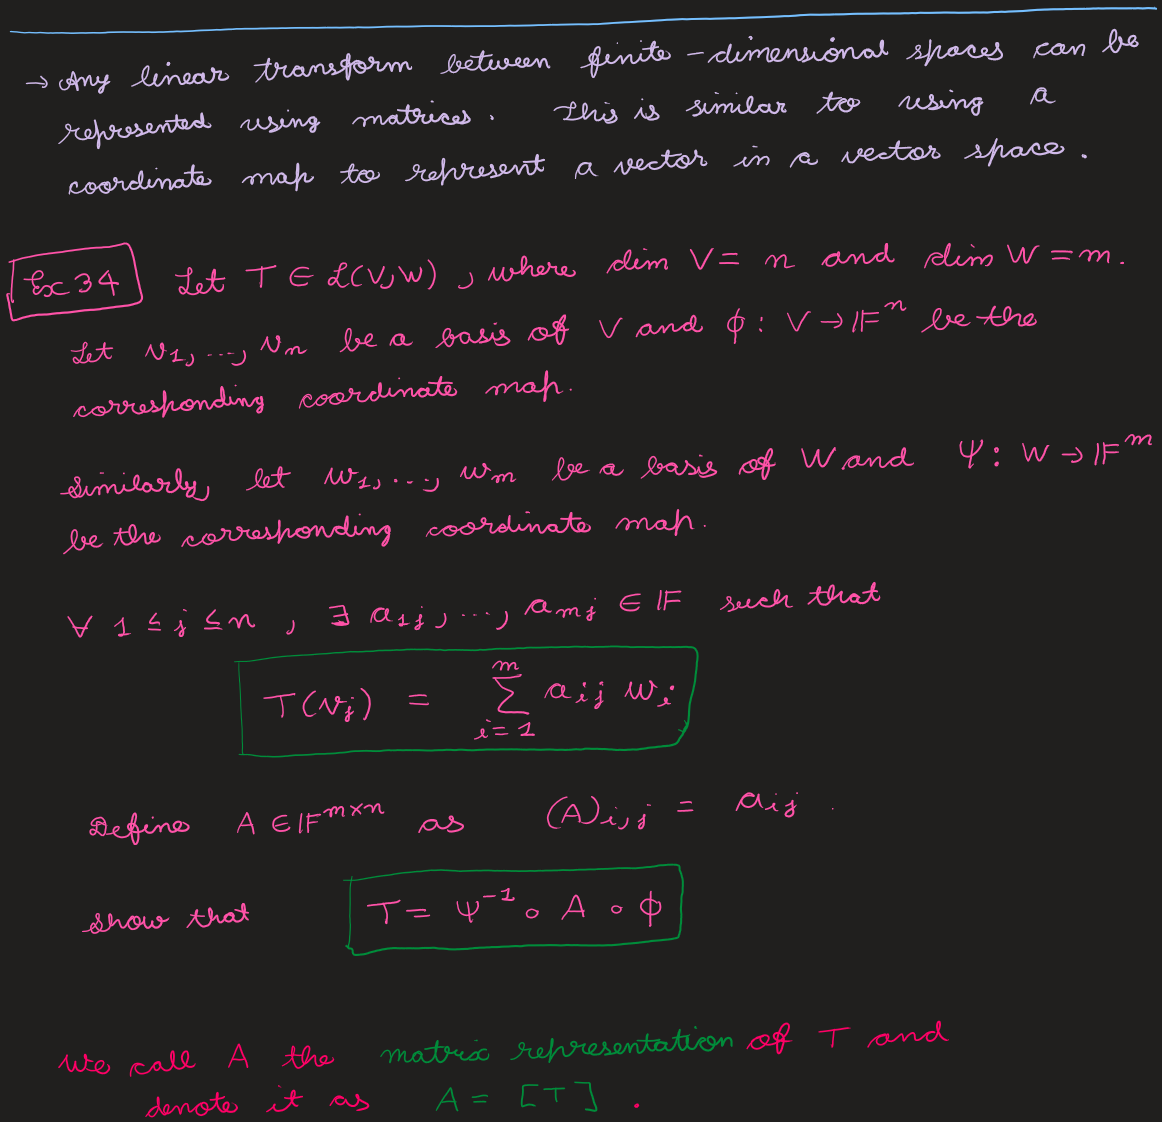 → Any linear transform between finite-dimensional spaces can be
represented using matrices. This is similar to using a
coordinate map to represent a vector in a vector space.
Ex 34 Let T ∈ ℒ(V,W), where dim V = n and dim W = m.
Let v₁, ..., vₙ be a basis of V and ϕ : V → 𝔽ⁿ be the
corresponding coordinate map.
Similarly, let w₁, ..., wₘ be a basis of W and Ψ : W → 𝔽ᵐ
be the corresponding coordinate map.
∀ 1 ≤ j ≤ n, ∃ a_{1j}, ..., a_{mj} ∈ 𝔽 such that
T(v_j) = ∑_{i=1}^{m} a_{ij} w_i
Define A ∈ 𝔽^{m×n} as (A)_{i,j} = a_{ij}.
Show that T = Ψ⁻¹ ∘ A ∘ ϕ
We call A the matrix representation of T and
denote it as A = [T].